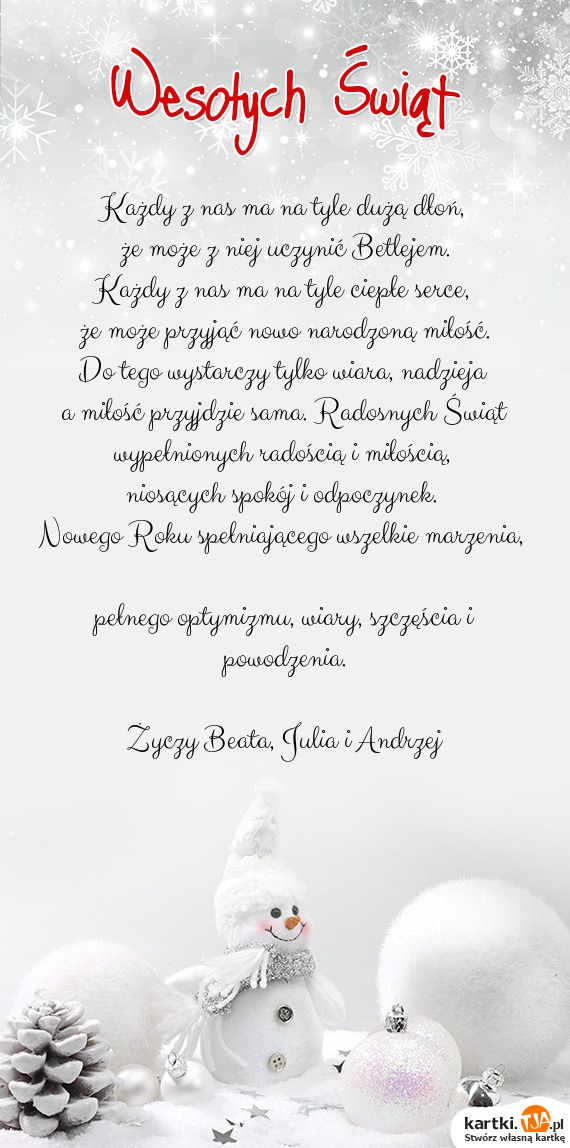 Wesołych Świąt
Każdy z nas ma na tyle dużą dłoń,
że może z niej uczynić Betlejem.
Każdy z nas ma na tyle ciepłe serce,
że może przyjąć nowo narodzoną miłość.
Do tego wystarczy tylko wiara, nadzieja
a miłość przyjdzie sama. Radosnych Świąt
wypełnionych radością i miłością,
niosących spokój i odpoczynek.
Nowego Roku spełniającego wszelkie marzenia,
pełnego optymizmu, wiary, szczęścia i
powodzenia.
Życzy Beata, Julia i Andrzej
kartki.TJA.pl
Stwórz własną kartkę